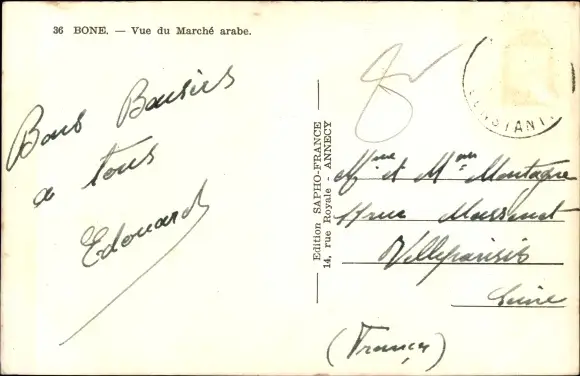 36 BONE. — Vue du Marché arabe.
Bons Baisers
a tous
Edouard
Edition SAPHO-FRANCE
14, rue Royale - ANNECY
CONSTANT
Mme et Mr Montagne
rue Massenet
Villeparisis
Seine
(France)